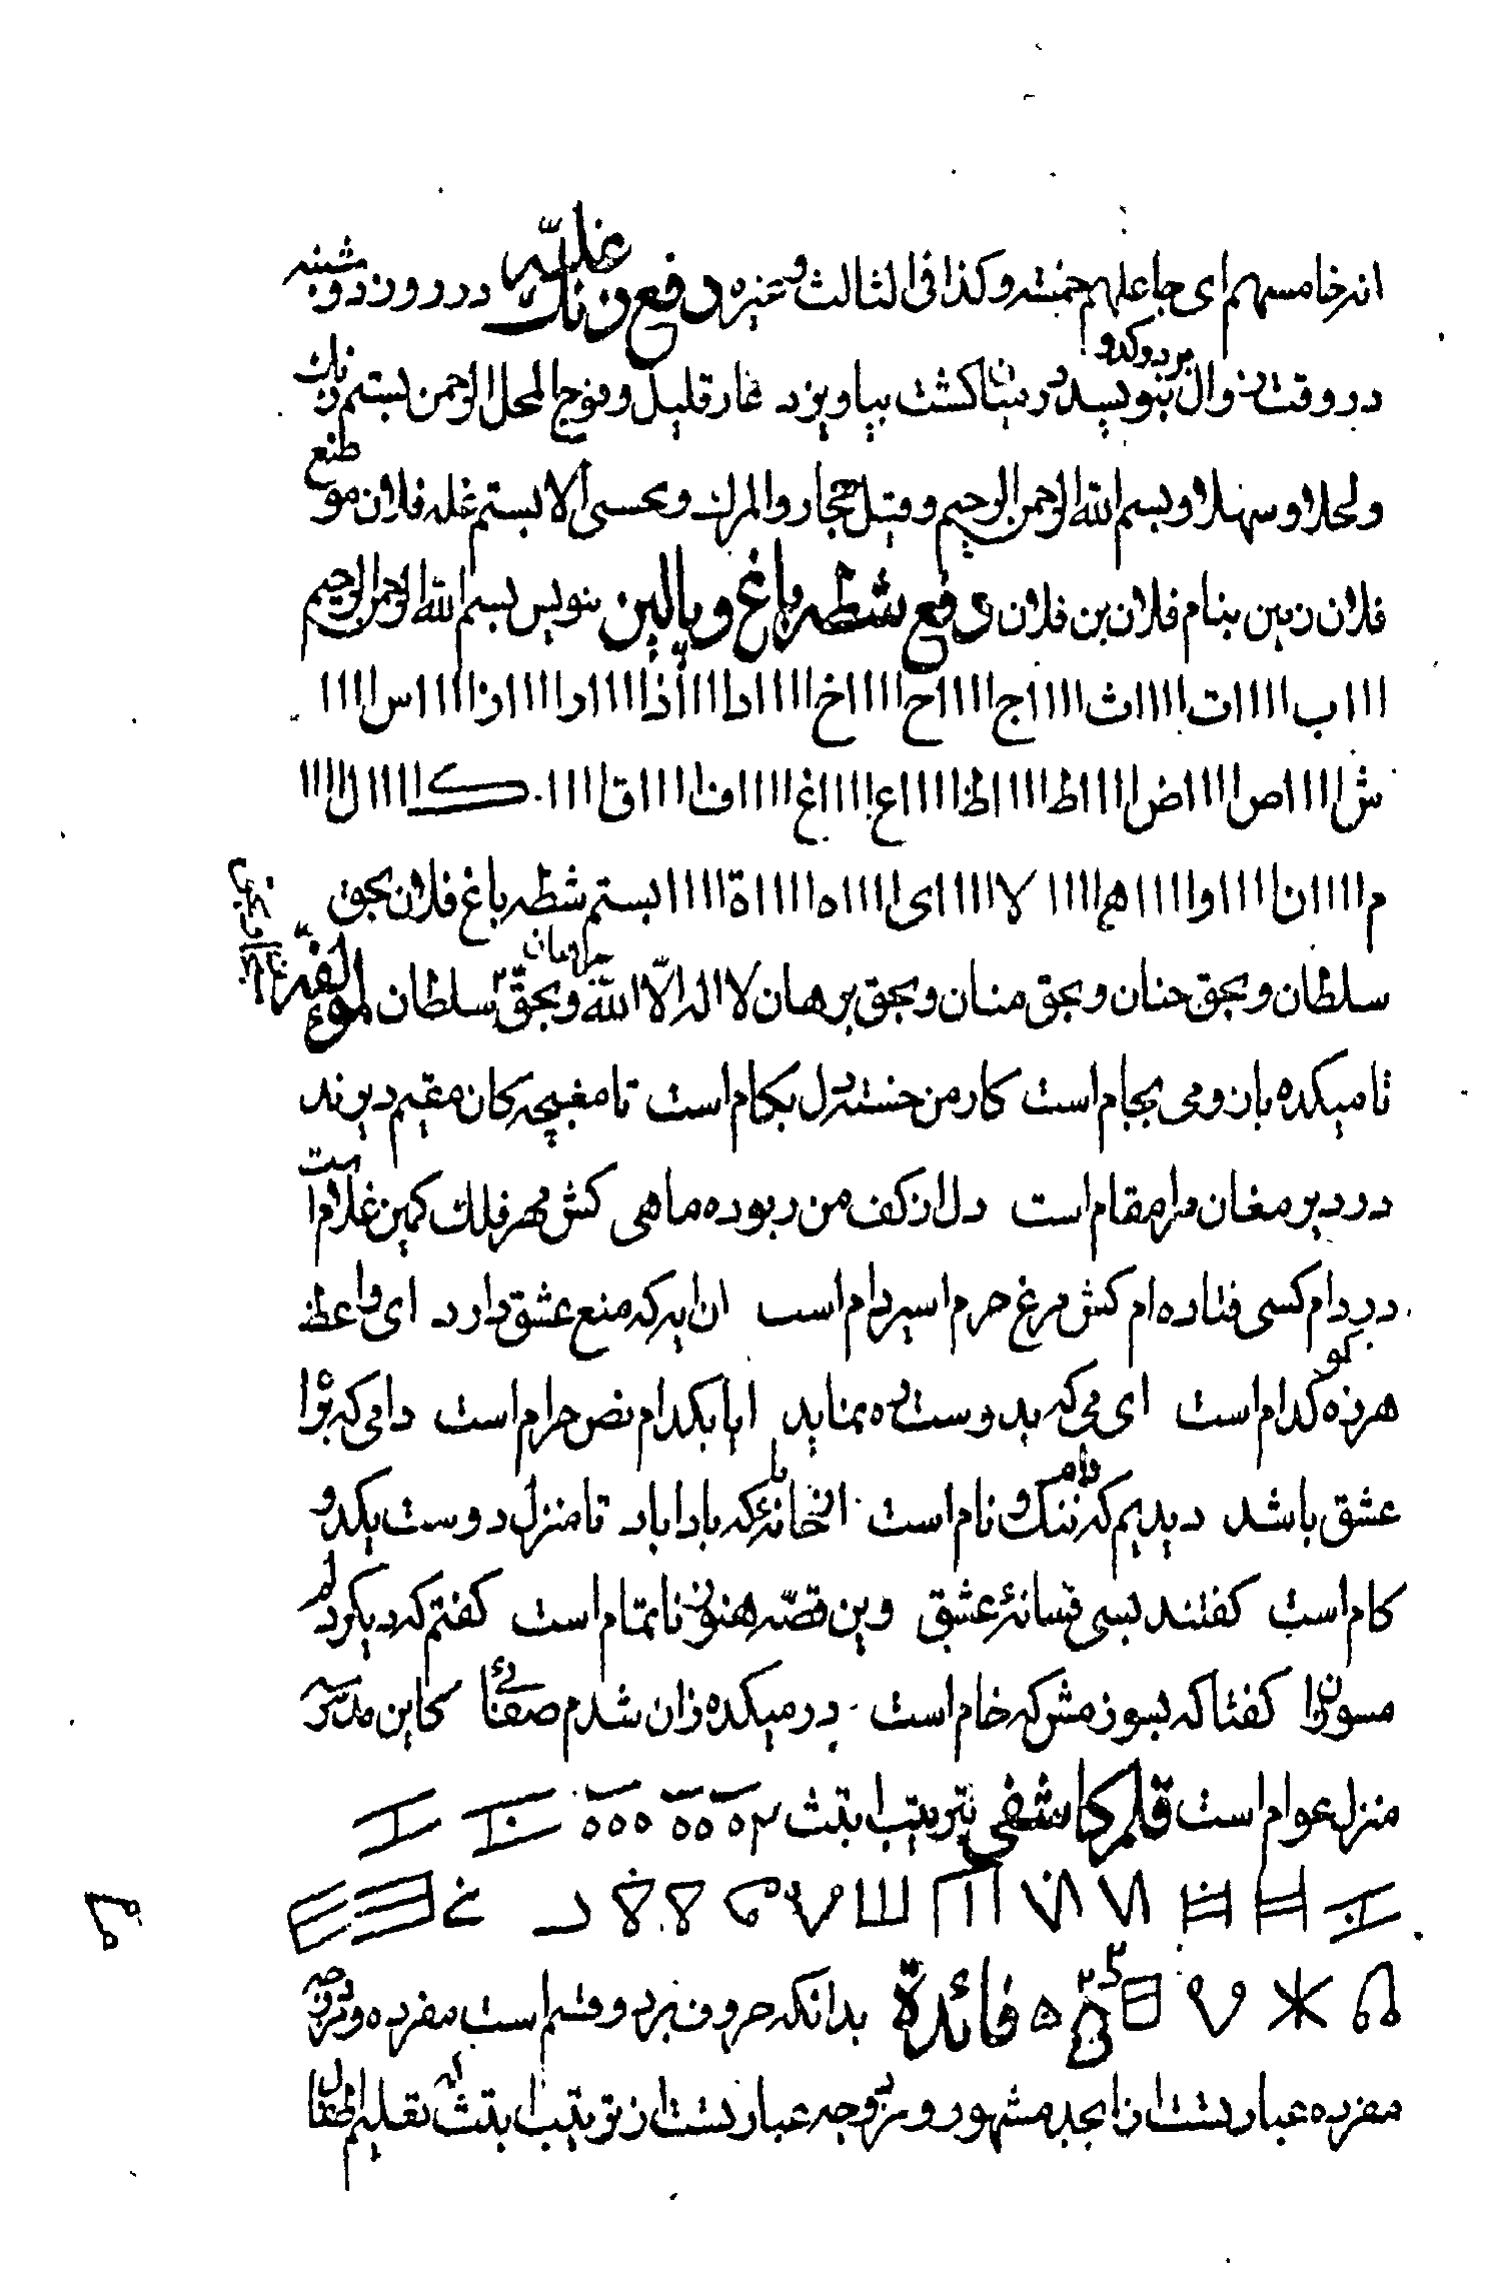 انه خامسهم ای جاعلهم خمسته وکذا فی الثالث و غیره دفع زنك غله در روز دوشنبه
در وقت زوال بنویسد بر دو کدو در میان کشت بیاویزد غار قلیل و فوج المحل الرحمن بستم زنك
ولحلا و سهلا و بسم الله الرحمن الرحیم وقیل حجار والمرك و بحسی الا بستم غله فلان موضع
فلان زمین بنام فلان بن فلان دفع شطه باغ و پالیز بنویس بسم الله الرحمن الرحیم
ااا ب اااا ت اااا ث اااا ج اااا ح اااا خ اااا د اااا ذ اااا ر اااا ز اااا س اااا
ش اااا ص اااا ض اااا ط اااا ظ اااا ع اااا غ اااا ف اااا ق اااا ك اااا ل اااا
م اااا ن اااا و اااا ه اااا لا اااا ی اااا ه اااا ة اااا بستم شطه باغ فلان بحق
سلطان و بحق حنان و بحق منان و بحق برهان لا اله الا الله و بحق سلطان لمؤلفه
تا میکده باز و می بجام است کار من خسته دل بکام است تا مغبچه کان مقیم دیرند
در دیر مغان مرا مقام است دل از کف من ربوده ماهی کش مهر فلك کمین غلام است
در دام کسی فتاده ام کش مرغ حرم اسیر دام است ان ابر که منع عشق دارد ای واعظ
هرزه کو کدام است ای می که بدوست ره نماید ایا بکدام نص حرام است دامی که ترا
عشق باشد دیدیم که دام ننك و نام است از خانۀ که بادا باد تا منزل دوست یکدو
کام است کفتند بسی فسانۀ عشق وین قصه هنوز ناتمام است کفتم که دیکر دلم
مسوزان کفتا که بسوزمش که خام است در میکده زان شدم صفائی کاین مدرسه
منزل عوام است قلم کاشفی بترتیب ابتث
فائدة بدانکه حروف بر دو قسم است مفرده و مزدوجه
مفرده عبارتست از ابجد مشهور و مزدوجه عبارتست از ترتیب ابتث که تعلیم اطفال